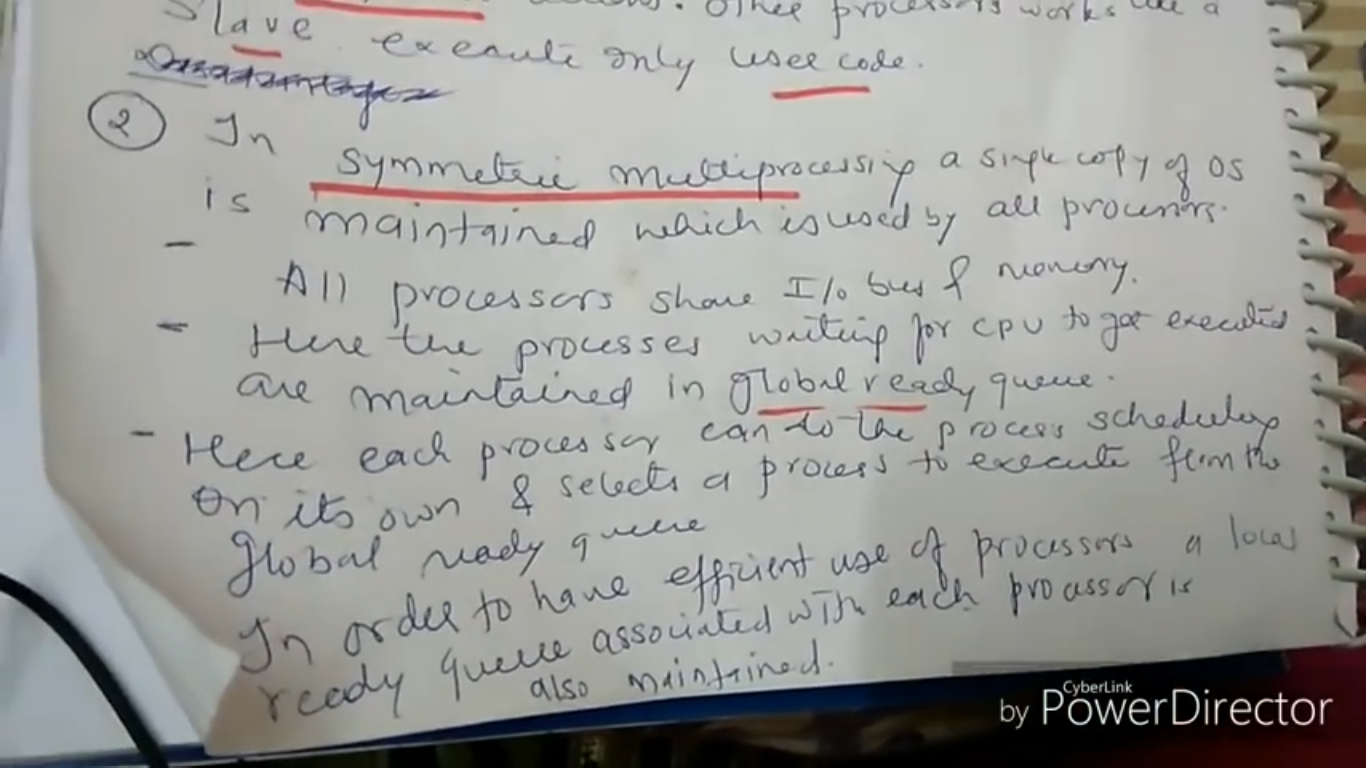 Other processors works like a
Slave. execute only user code.
② In symmetric multiprocessing a single copy of OS
is maintained which is used by all processors.
- All processors share I/o bus & memory.
- Here the processes waiting for CPU to get executed
are maintained in global ready queue.
- Here each processor can do the process scheduling
on its own & selects a process to execute from the
global ready queue
In order to have efficient use of processors a local
ready queue associated with each processor is
also maintained.
CyberLink
by PowerDirector